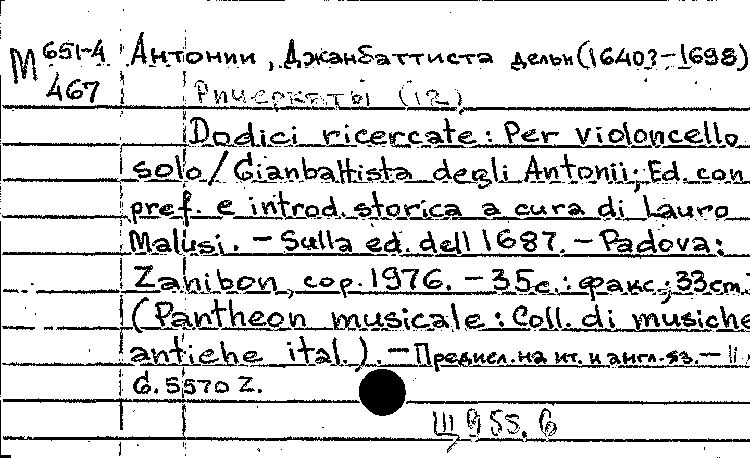 М 651-4 Антонии, Джанбаттиста дельи (1640?-1698)
467 Ричеркаты (12)
Dodici ricercate: Per violoncello
solo / Gianbattista degli Antonii; Ed. con
pref. e introd. storica a cura di Lauro
Malusi. - Sulla ed. dell 1687. - Padova:
Zanibon, cop. 1976. - 35с.: факс.; 33cm.
(Pantheon musicale: Coll. di musiche
antiche ital.). - Предисл. на ит. и англ. яз. -
G. 5570 Z.
Щ 955.6